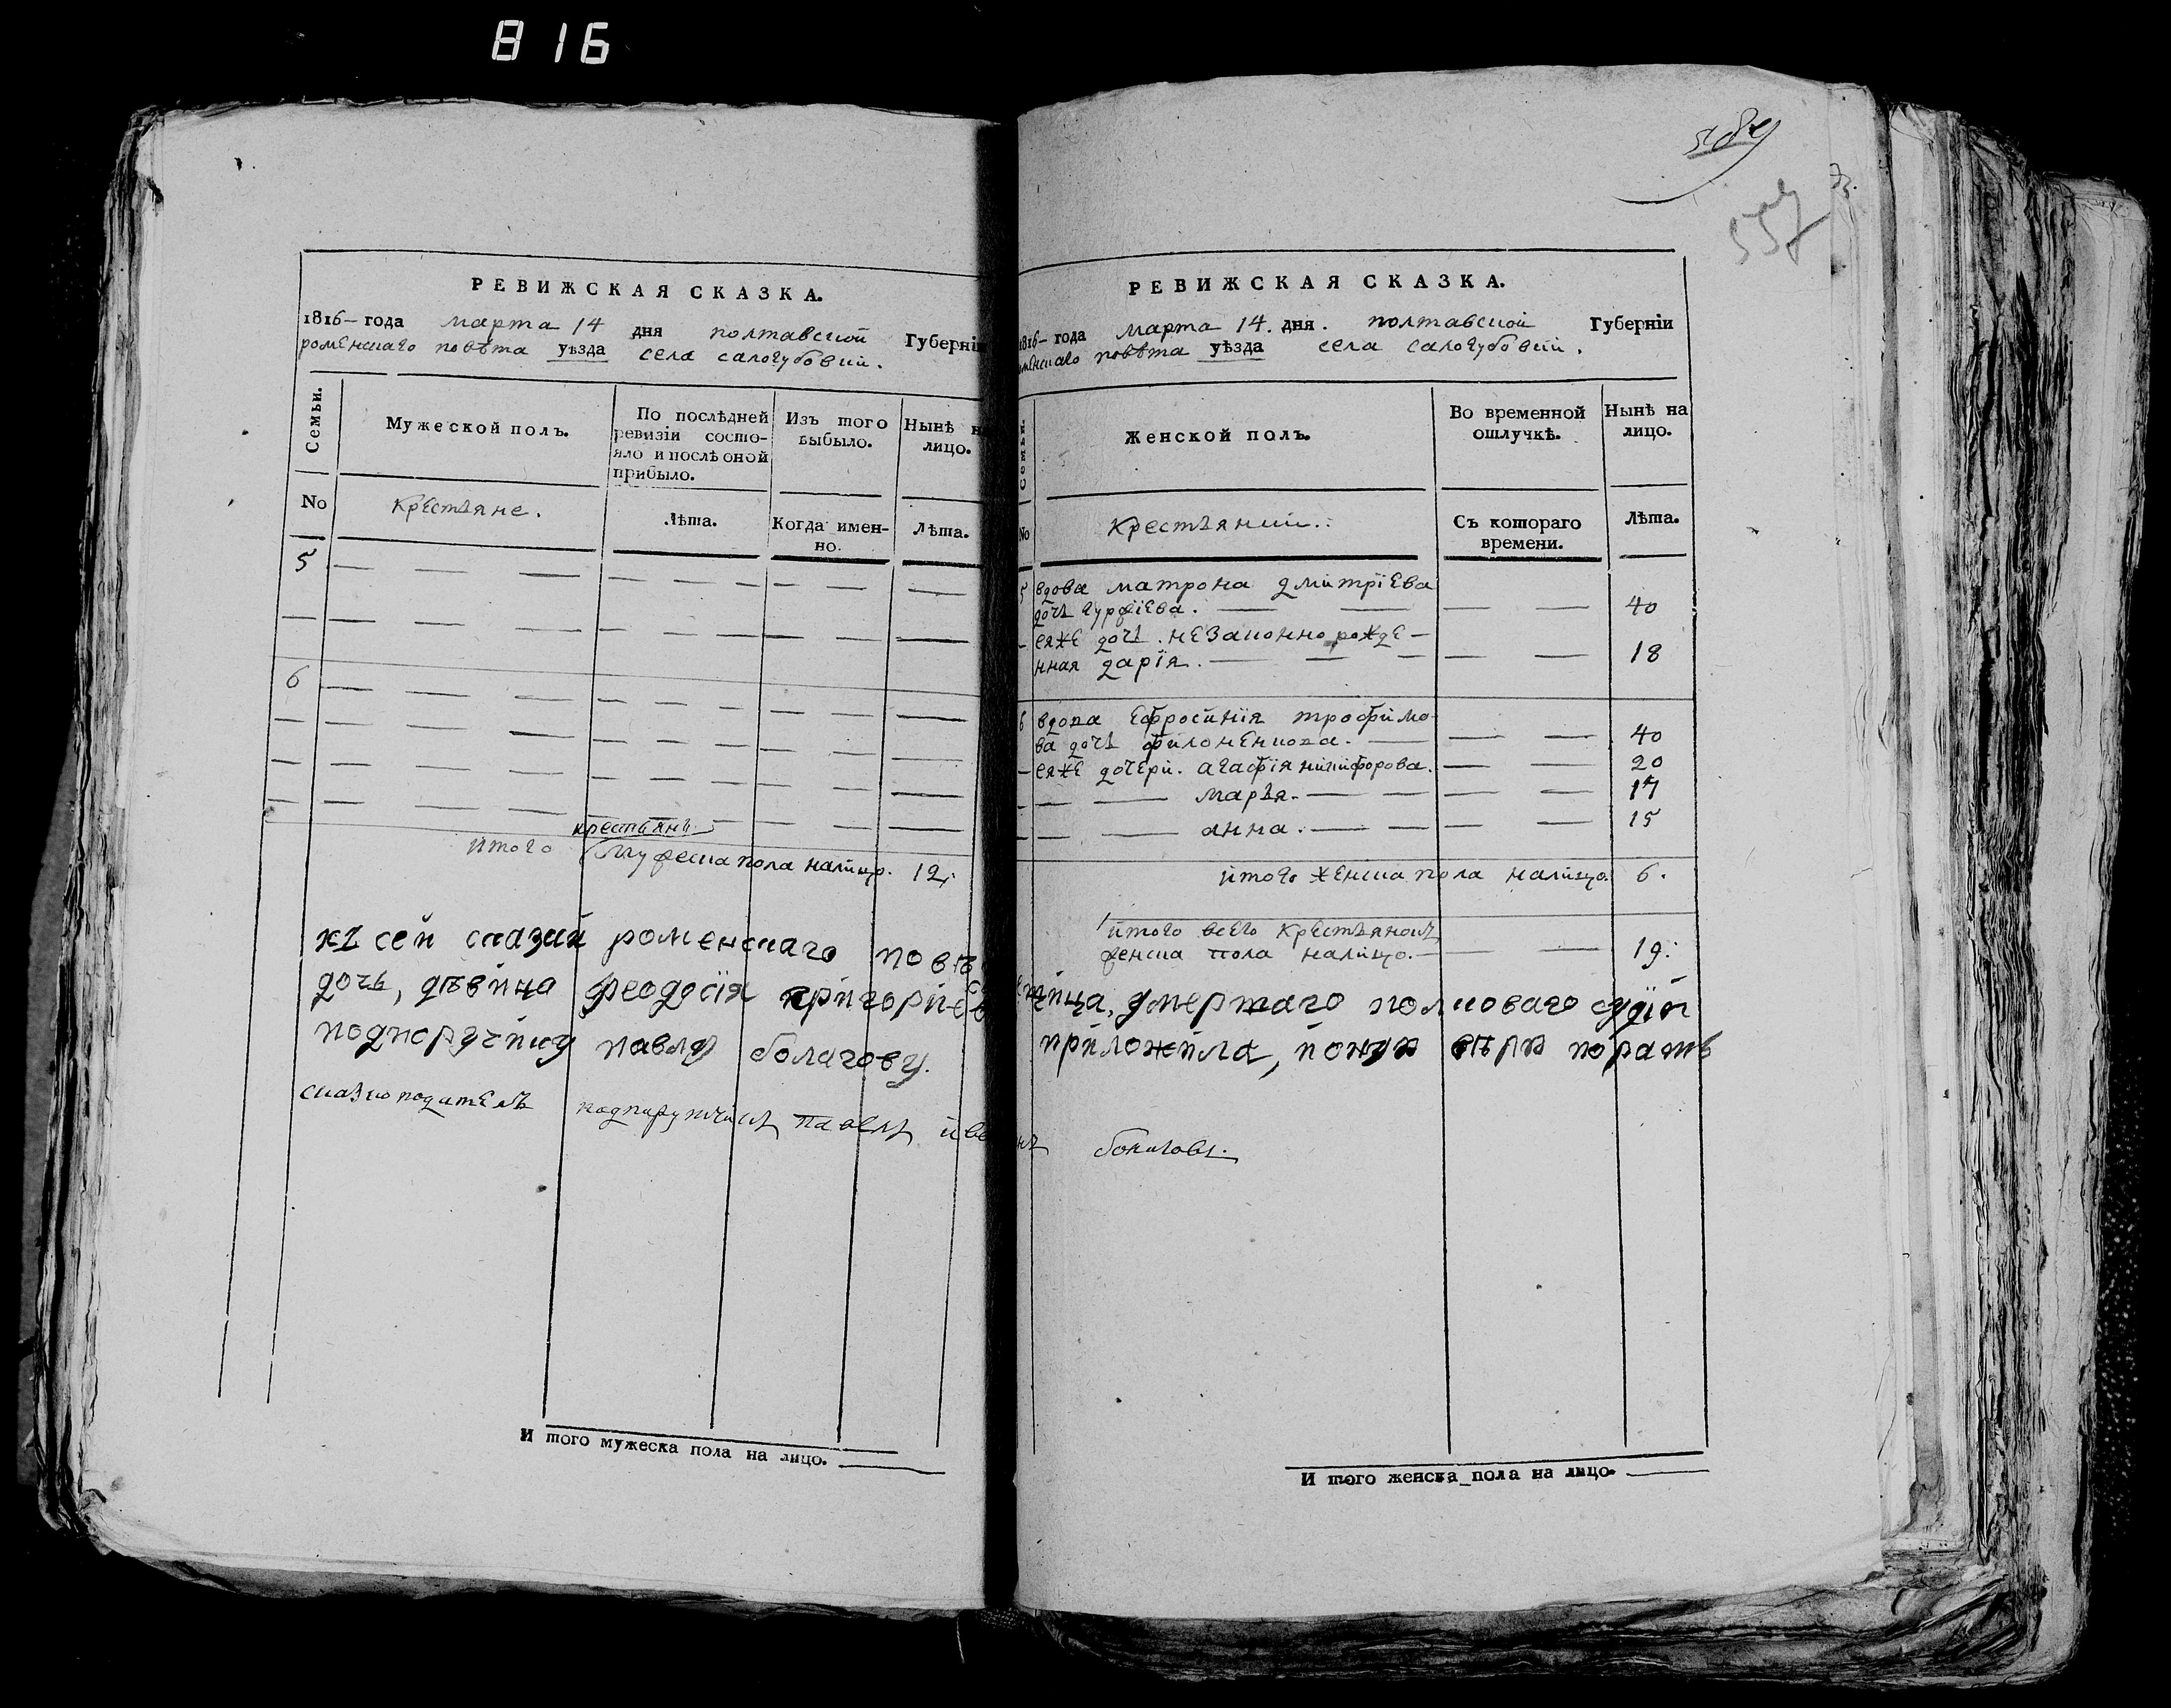 816
РЕВИЖСКАЯ СКАЗКА.
1816– года марта 14 дня полтавской Губерніи
роменскаго повѣта уѣзда села салогубовки.
Семьи.
Мужеской полъ.
По послѣдней
ревизіи состо-
яло и послѣ оной
прибыло.
Изъ того
выбыло.
Нынѣ на
лицо.
No
Крестьяне.
Лѣта.
Когда имен-
но.
Лѣта.
5
6
крестьянъ
итого мужеска пола налицо. 12.
къ сей сказки роменскаго повѣ
дочь, дѣвица феодосія григоріев
подпоручику павлу болагову.
сказкоподатель подпоручикъ павелъ ива
И того мужеска пола на лицо.
589
557
РЕВИЖСКАЯ СКАЗКА.
1816– года марта 14. дня. полтавской Губерніи
менскаго повѣта уѣзда села салогубовки.
Семьи.
Женской полъ.
Во временной
отлучкѣ.
Нынѣ на
лицо.
No
Крестьянки.
Съ котораго
времени.
Лѣта.
5 вдова матрона дмитріева
дочь гурфіева. 40
– еяже дочь. незаконно рожде–
нная дарія. 18
6 вдова Ефросинія трофимо-
ва дочь филоненкова. 40
– еяже дочери. агафія никифорова. 20
марья. 17
анна. 15
итого женска пола налицо. 6.
итого всего крестьянокъ
женска пола налицо. 19.
умершаго полковаго судіи
приложила,
нъ болаговъ.
И того женска пола на лицо.